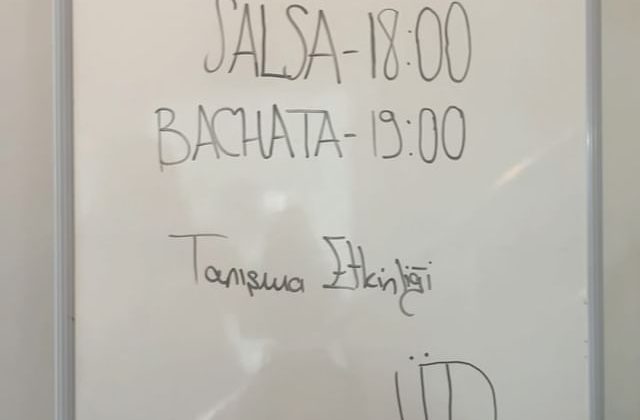 SALSA-18:00
BACHATA-19:00
Tanışma Etkinliği
ÜD